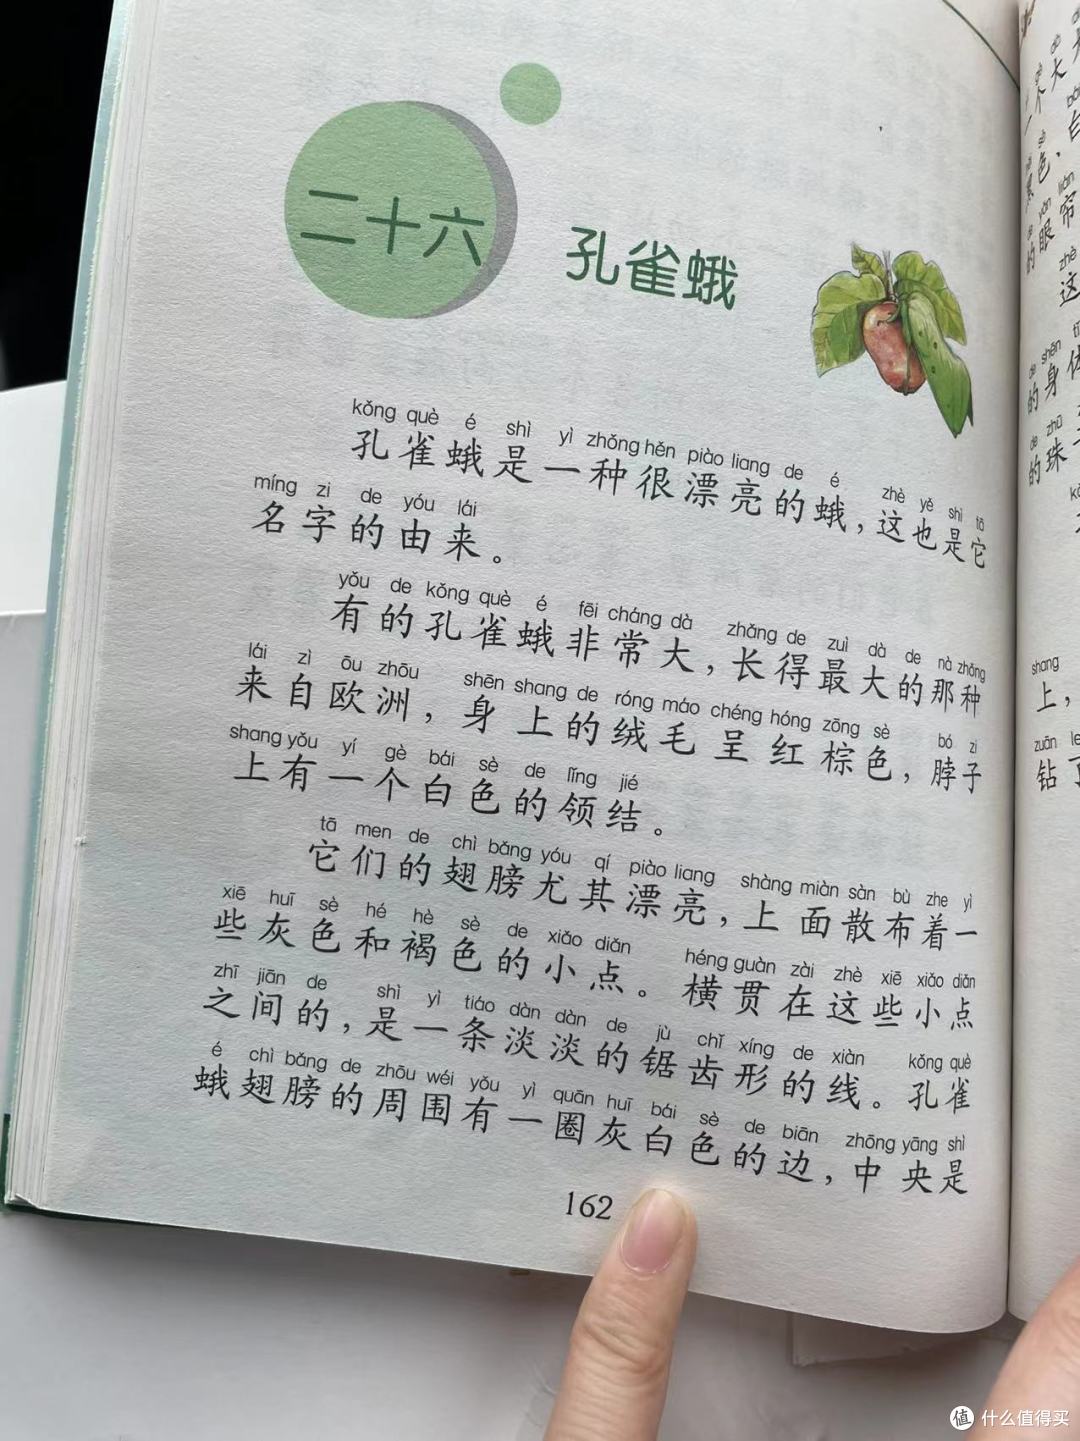 二十六
孔雀蛾
kǒng què é shì yì zhǒng hěn piào liang de é zhè yě shì tā
孔雀蛾是一种很漂亮的蛾，这也是它
míng zi de yóu lái
名字的由来。
yǒu de kǒng què é fēi cháng dà zhǎng de zuì dà de nà zhǒng
有的孔雀蛾非常大，长得最大的那种
lái zì ōu zhōu shēn shang de róng máo chéng hóng zōng sè bó zi
来自欧洲，身上的绒毛呈红棕色，脖子
shang yǒu yí gè bái sè de lǐng jié
上有一个白色的领结。
tā men de chì bǎng yóu qí piào liang shàng miàn sàn bù zhe yì
它们的翅膀尤其漂亮，上面散布着一
xiē huī sè hé hè sè de xiǎo diǎn héng guàn zài zhè xiē xiǎo diǎn
些灰色和褐色的小点。横贯在这些小点
zhī jiān de shì yì tiáo dàn dàn de jù chǐ xíng de xiàn kǒng què
之间的，是一条淡淡的锯齿形的线。孔雀
é chì bǎng de zhōu wéi yǒu yì quān huī bái sè de biān zhōng yāng shì
蛾翅膀的周围有一圈灰白色的边，中央是
162
色、
liàn
的眼帘
zhè
这
de shēn
的身体
de zhū
的珠
shang
上，
zuān le
钻了
值 什么值得买